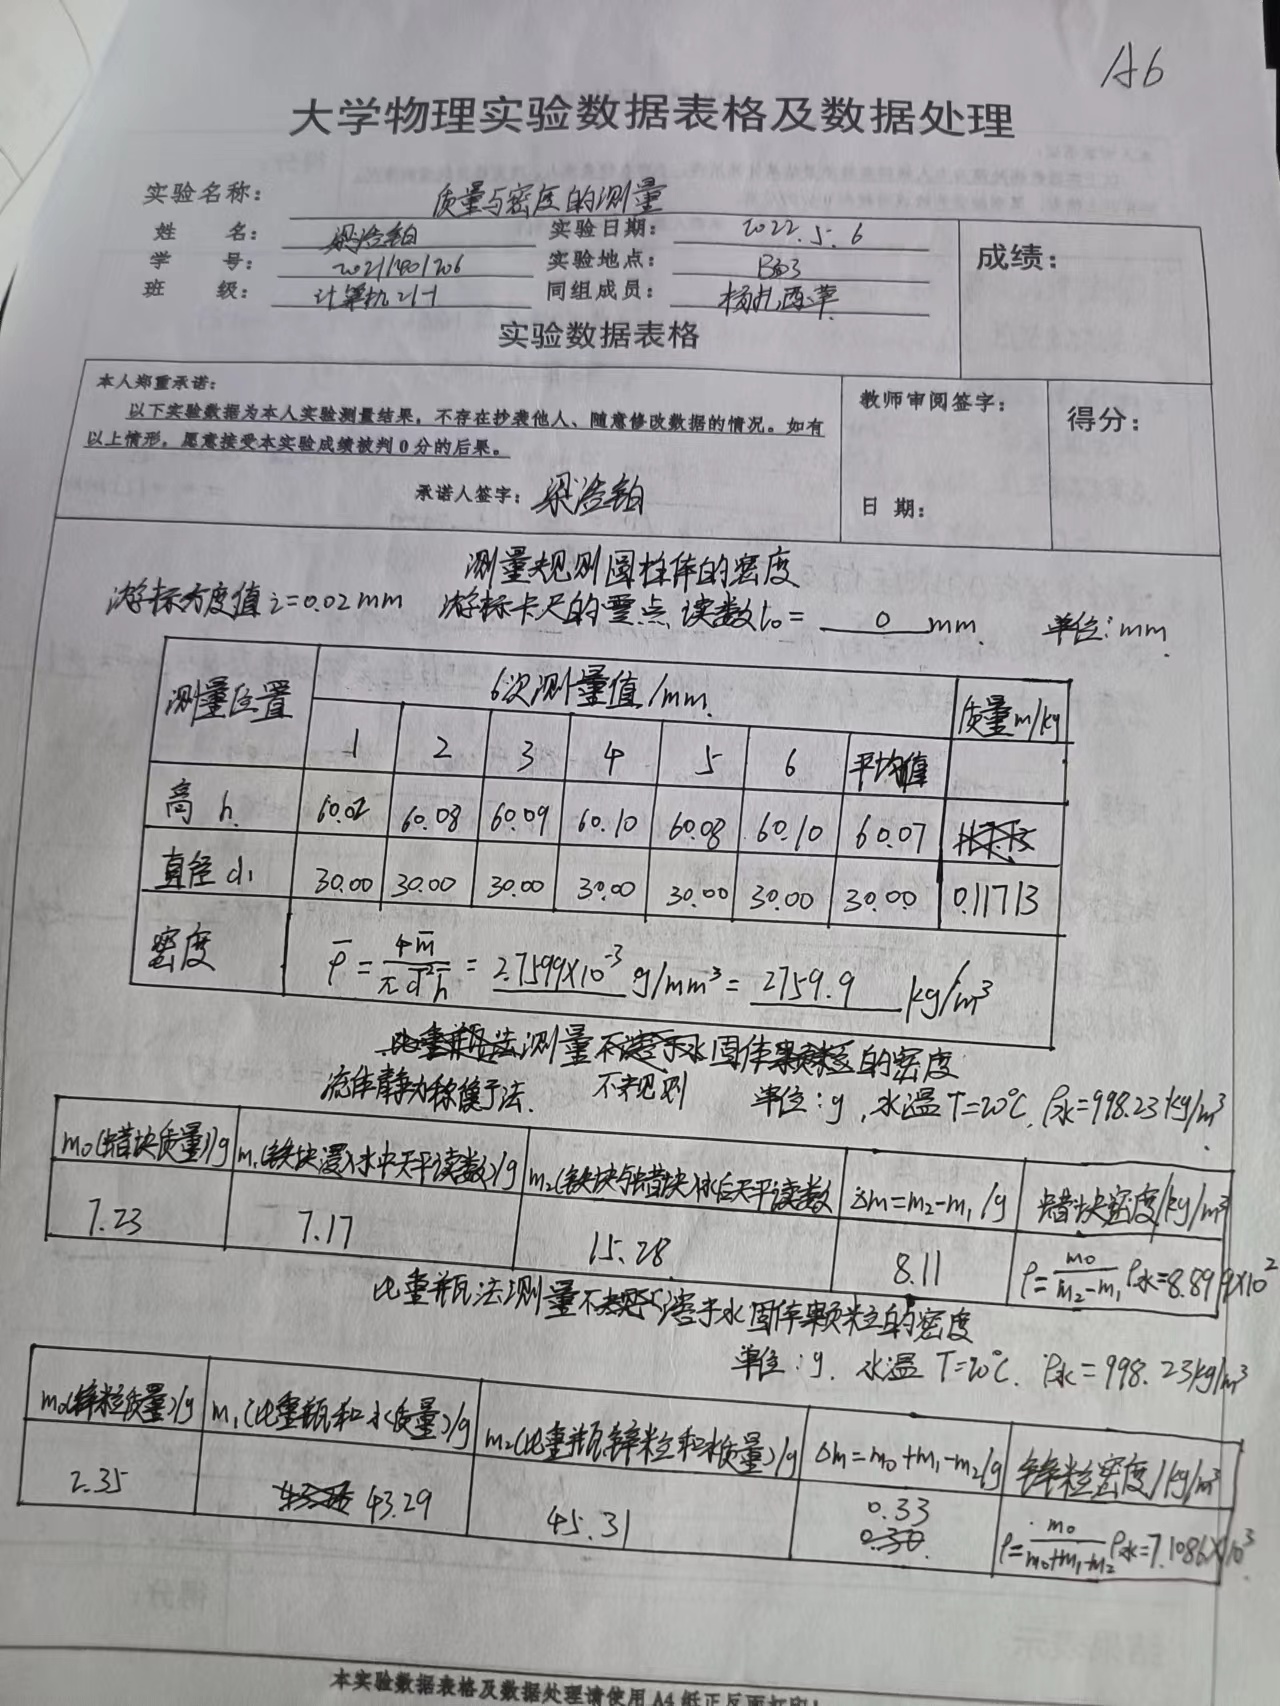 A6
大学物理实验数据表格及数据处理
实验名称： 质量与密度的测量
姓 名： 梁浩铂 实验日期： 2022.5.6
成绩：
学 号： 20211801206 实验地点： B303
班 级： 计算机21-1 同组成员： 杨扎西草
实验数据表格
本人郑重承诺：
以下实验数据为本人实验测量结果，不存在抄袭他人、随意修改数据的情况。如有
以上情形，愿意接受本实验成绩被判0分的后果。
承诺人签字： 梁浩铂
教师审阅签字：
日 期：
得分：
测量规则圆柱体的密度
游标分度值i=0.02mm 游标卡尺的零点读数l₀= 0 mm 单位：mm
测量位置 6次测量值/mm 质量m/kg
1 2 3 4 5 6 平均值
高 h 60.02 60.08 60.09 60.10 60.08 60.10 60.07
直径 d₁ 30.00 30.00 30.00 30.00 30.00 30.00 30.00 0.11713
密度 ρ̄ = 4m̄/πd̄²h̄ = 2.7599×10⁻³ g/mm³ = 2759.9 kg/m³
测量不规则固体的密度
流体静力称衡法
单位：g，水温T=20℃，ρ水=998.23kg/m³
m₀(蜡块质量)/g m₁(铁块浸入水中天平读数)/g m₂(铁块与蜡块入水后天平读数 Δm=m₂-m₁/g 蜡块密度/kg/m³
7.23 7.17 15.28 8.11 ρ=m₀/(m₂-m₁)ρ水=8.8999×10²
比重瓶法测量不溶于水固体颗粒的密度
单位：g. 水温 T=20℃. ρ水=998.23kg/m³
m₀(锌粒质量)/g m₁(比重瓶和水质量)/g m₂(比重瓶锌粒和水质量)/g Δm=m₀+m₁-m₂/g 锌粒密度/kg/m³
2.35 43.29 45.31 0.33 ρ=m₀/(m₀+m₁-m₂)ρ水=7.1086×10³
本实验数据表格及数据处理请使用A4纸正反面打印！